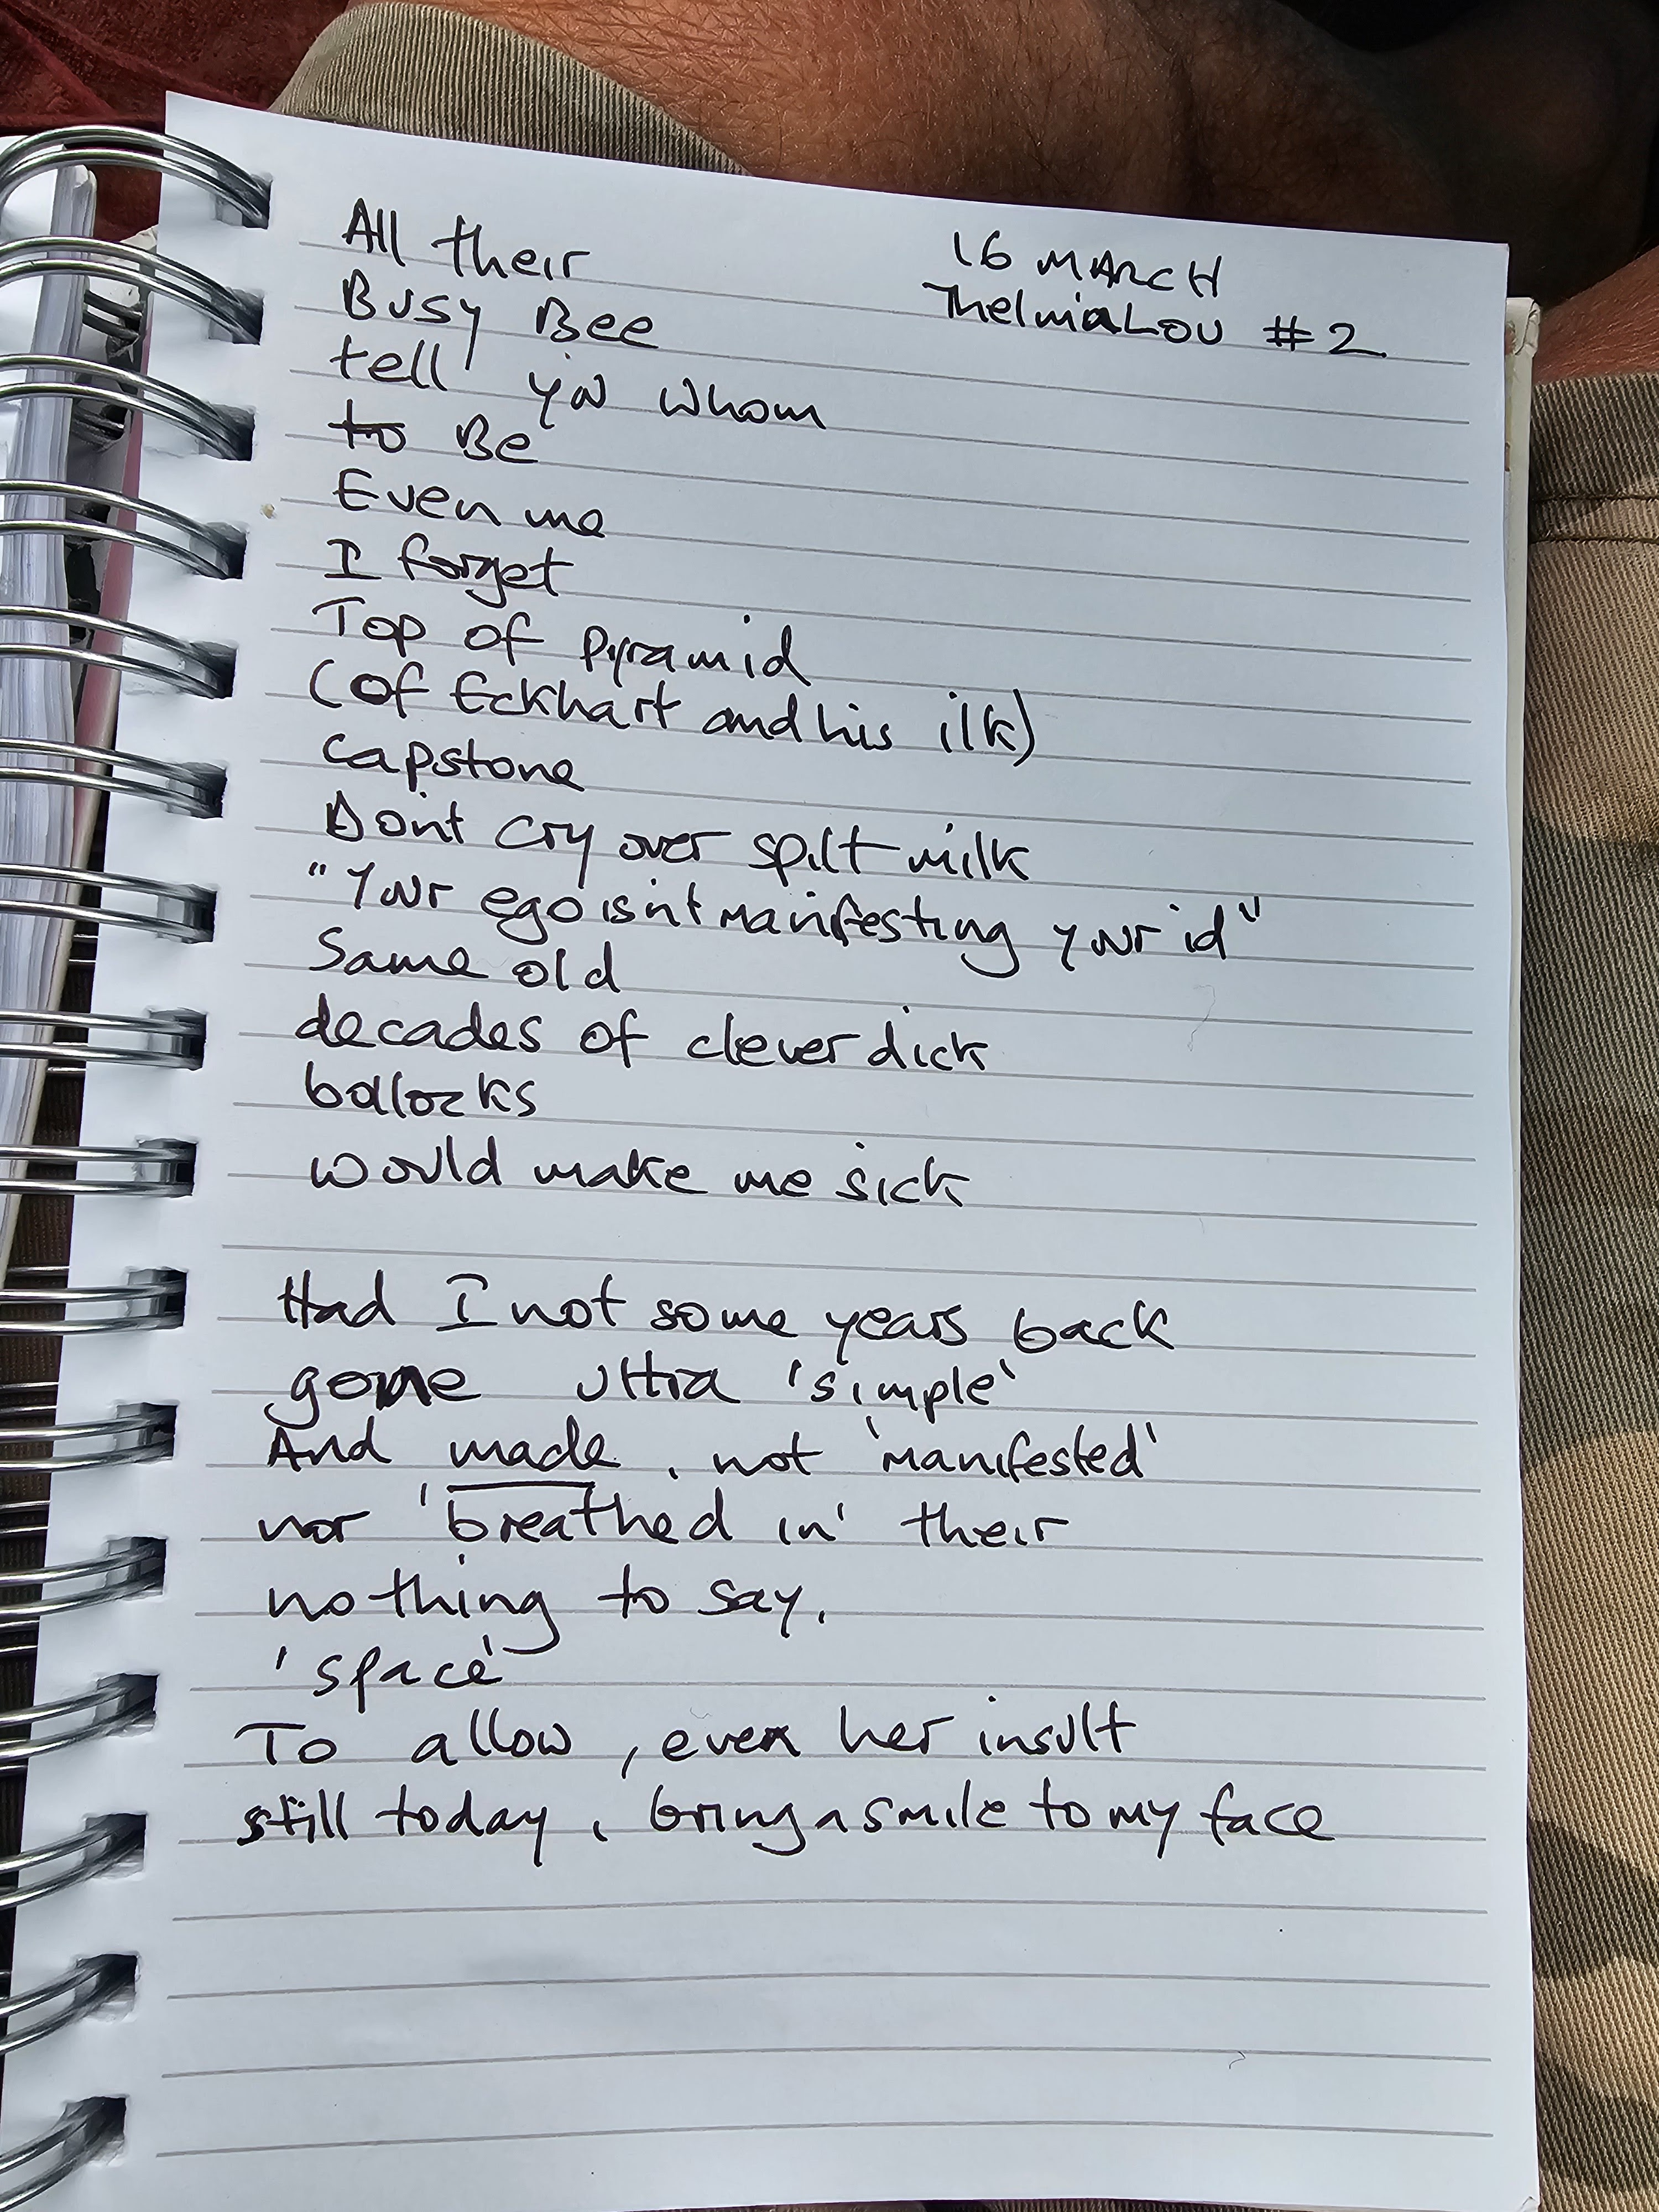 All their
16 MARCH
ThelmaLou #2
Busy Bee
tell you whom
to Be
Even me
I forget
Top of pyramid
(of Eckhart and his ilk)
capstone
Don't cry over spilt milk
"Your ego isn't manifesting your id"
Same old
decades of clever dick
bollocks
would make me sick
Had I not some years back
gone ultra 'simple'
And made, not 'manifested'
nor 'breathed in' their
nothing to say,
'space'
To allow, even her insult
still today, bring a smile to my face